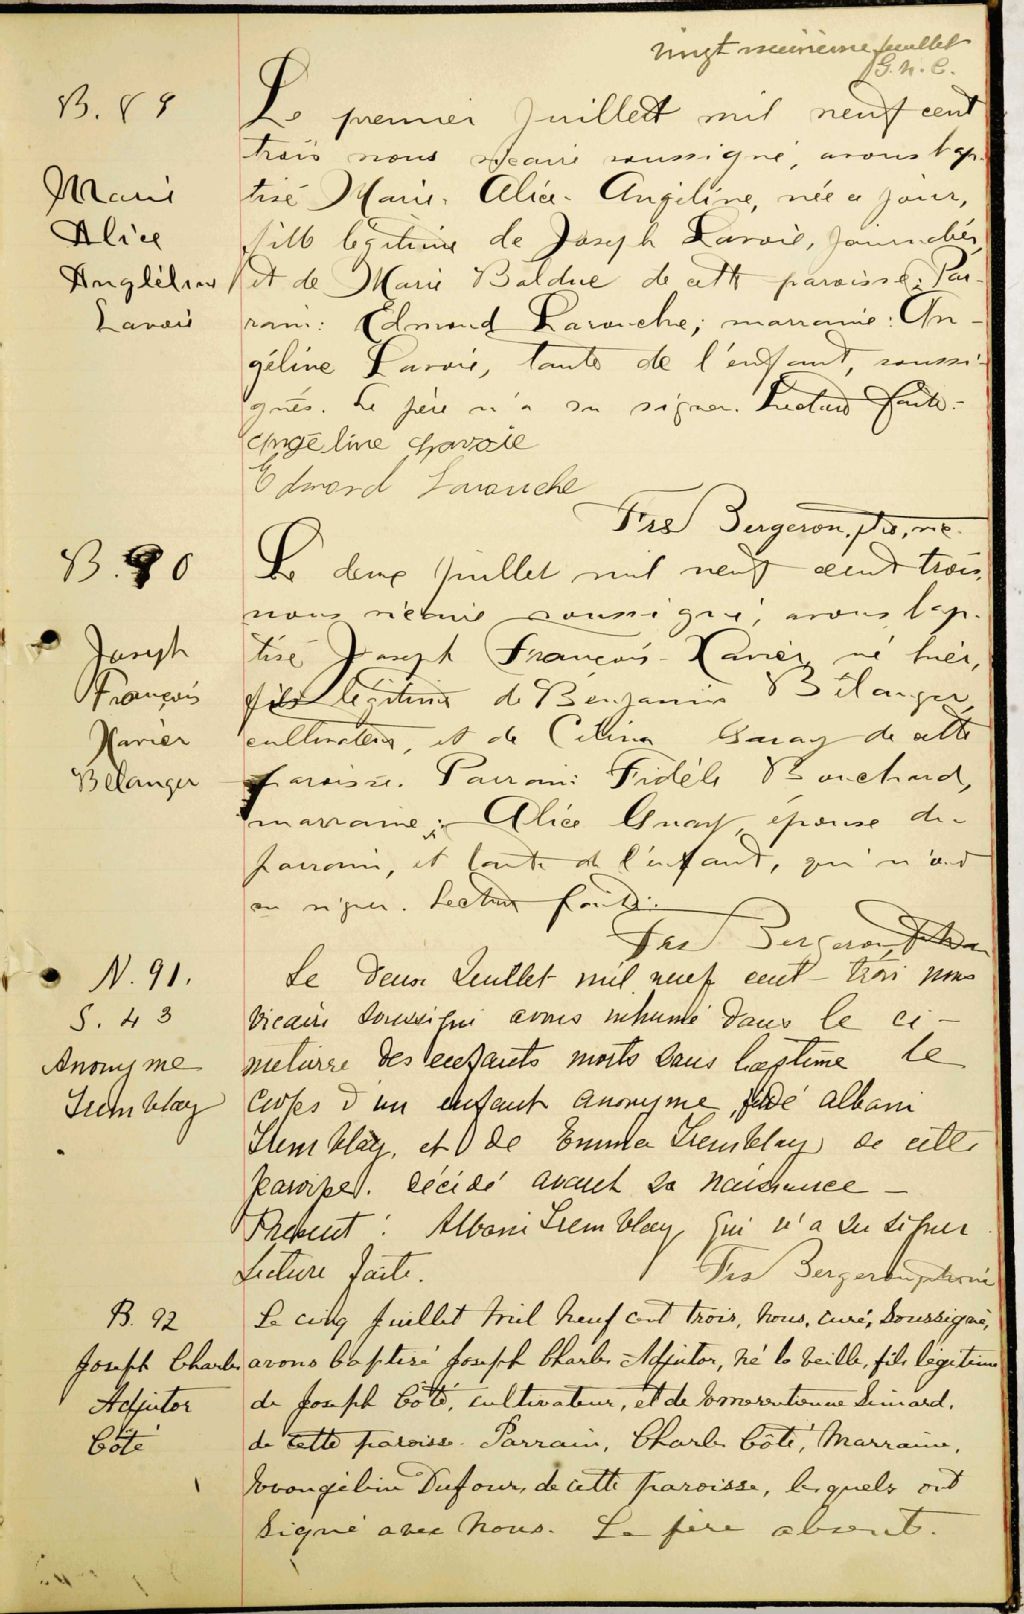 vingt neuvième feuillet
G. N. C.
B. 89
Marie
Alice
Angélina
Lavoie
Le premier Juillet mil neuf cent
trois nous vicaire soussigné, avons bap-
tisé Marie-Alice-Angéline, née ce jour,
fille légitime de Joseph Lavoie, journalier,
et de Marie Bolduc de cette paroisse; Par-
rain: Edmond Larouche; marraine: An-
géline Lavoie, tante de l'enfant, soussi-
gnés. Le père n'a su signer. Lecture faite.-
Angéline Lavoie
Edmond Larouche
Frs Bergeron, ptre, vic.
B. 90
Joseph
François
Xavier
Bélanger
Le deux Juillet mil neuf cent trois,
nous vicaire soussigné, avons bap-
tisé Joseph François-Xavier, né hier,
fils légitime de Benjamin Bélanger,
cultivateur, et de Célina Guay de cette
paroisse. Parrain: Fidèle Bouchard,
marraine: Alice Guay, épouse du
parrain, et tante de l'enfant, qui n'ont
su signer. Lecture faite.
Frs Bergeron
N. 91.
S. 43
Anonyme
Tremblay
Le deux Juillet mil neuf cent trois nous
vicaire soussigné avons inhumé dans le ci-
metière des enfants morts sans baptême le
corps d'un enfant anonyme, de Albani
Tremblay, et de Emma Tremblay de cette
paroisse. décédé avant sa naissance -
Présent: Albani Tremblay qui n'a su signer
Lecture faite.
Frs Bergeron ptre vic
B. 92
Joseph Charles
Adjutor
Côté
Le cinq Juillet mil neuf cent trois, nous, curé, soussigné,
avons baptisé Joseph Charles-Adjutor, né la veille, fils légitime
de Joseph Côté, cultivateur, et de Emerentienne Simard,
de cette paroisse. Parrain, Charles Côté, Marraine,
Evangéline Dufour, de cette paroisse, lesquels ont
signé avec nous. Le père absent.